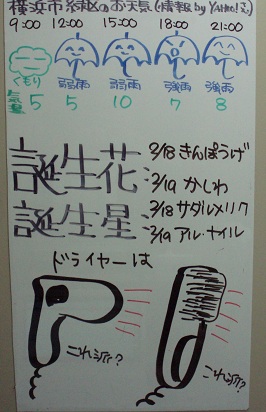 横浜市緑区のお天気(情報 by YAHOO!天気)
9:00 12:00 15:00 18:00 21:00
くもり 弱雨 弱雨 強雨 強雨
気温 5 5 10 7 8
誕生花 2/18 きんぽうげ
2/19 かしわ
誕生星 2/18 サダルメリク
2/19 アル・ナイル
ドライヤーは
これ派?
これ派?